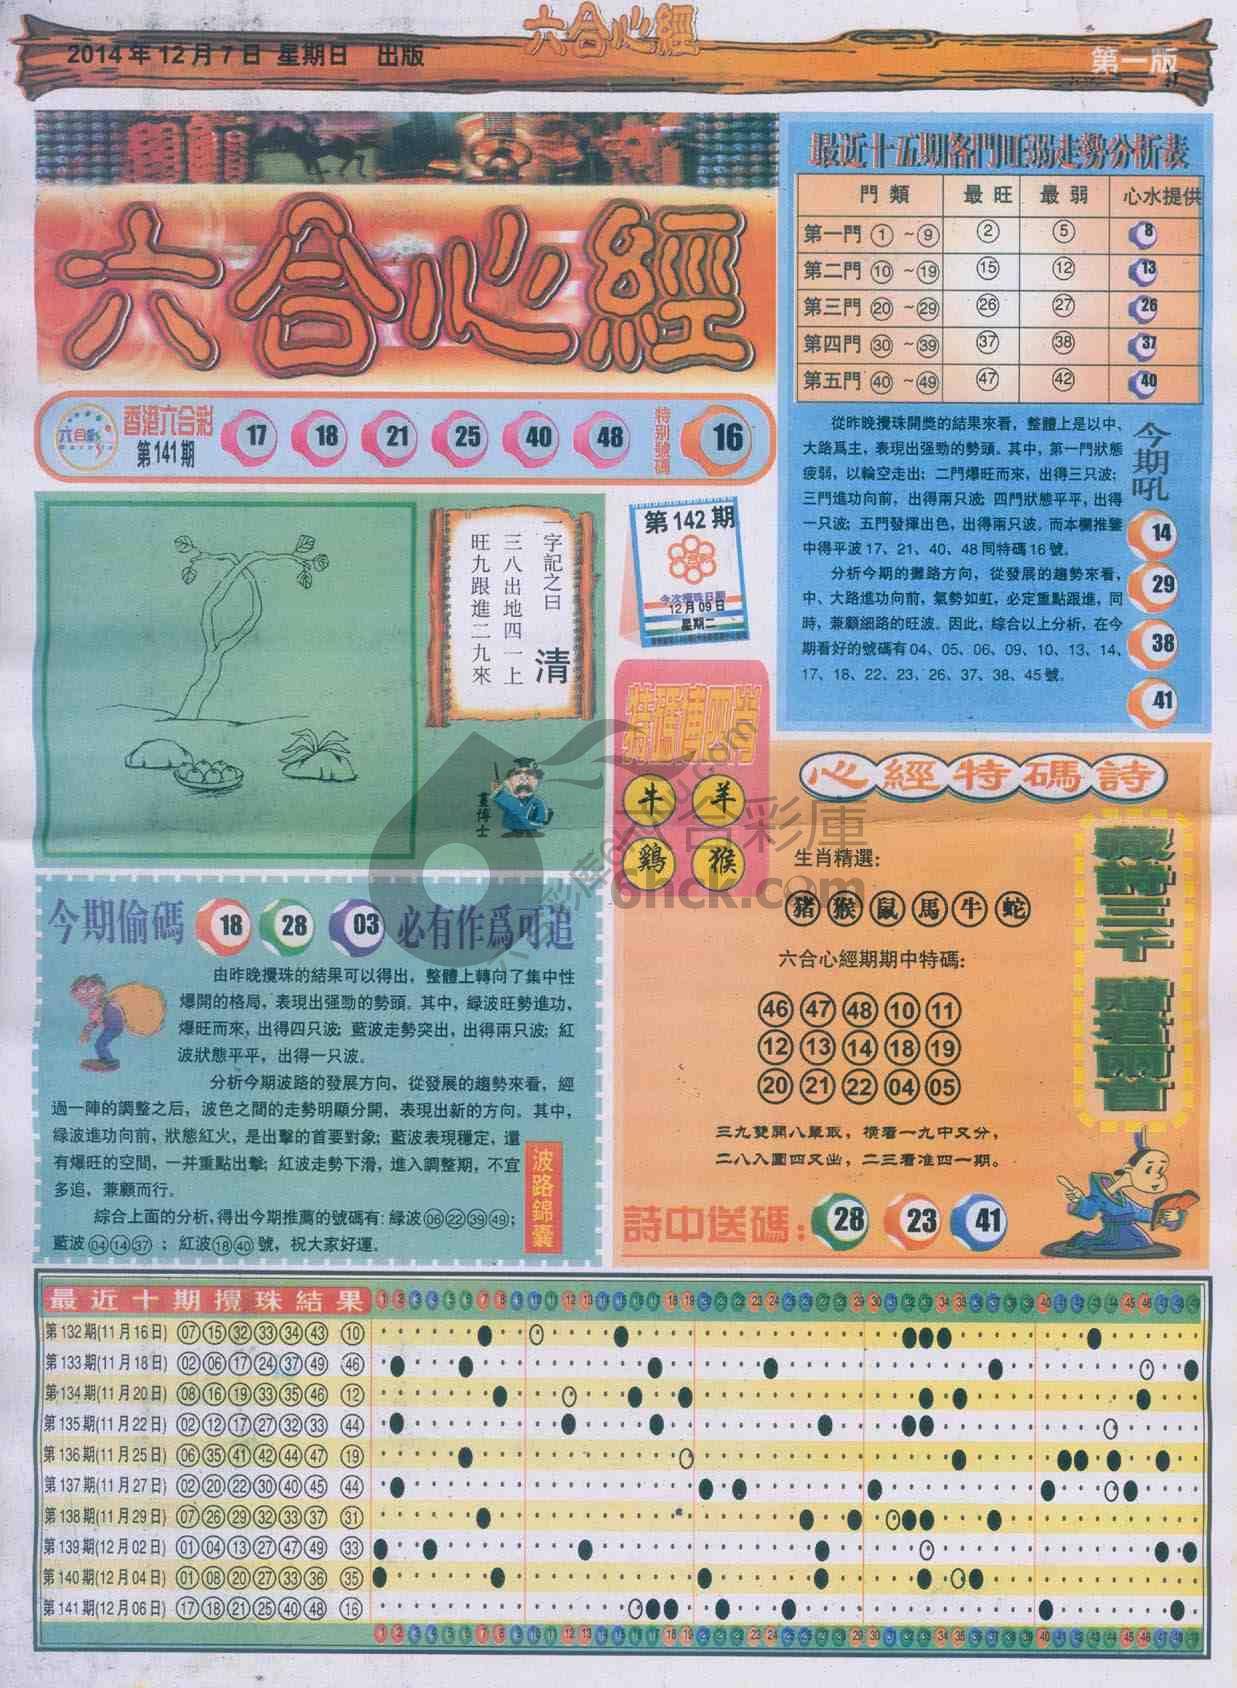 2014年12月7日 星期日 出版
六合心經
第一版
六合心經
六合彩
香港六合彩
第141期
17 18 21 25 40 48
特别號碼
16
最近十五期各門旺弱走勢分析表
門類 最旺 最弱 心水提供
第一門 ①~⑨ ② ⑤ 8
第二門 ⑩~⑲ ⑮ ⑫ 13
第三門 ⑳~㉙ ㉖ ㉗ 26
第四門 ㉚~㊴ ㊲ ㊳ 37
第五門 ㊵~㊾ ㊼ ㊷ 40
從昨晚攪珠開獎的結果來看，整體上是以中、
大路爲主，表現出强勁的勢頭。其中，第一門狀態
疲弱，以輪空走出；二門爆旺而來，出得三只波；
三門進功向前，出得兩只波；四門狀態平平，出得
一只波；五門發揮出色，出得兩只波。而本欄推鑒
中得平波17、21、40、48同特碼16號。
分析今期的攤路方向，從發展的趨勢來看，
中、大路進功向前，氣勢如虹，必定重點跟進，同
時，兼顧細路的旺波。因此，綜合以上分析，在今
期看好的號碼有04、05、06、09、10、13、14、
17、18、22、23、26、37、38、45號。
今期吼
14
29
38
41
一字記之曰 清
三八出地四一上
旺九跟進二九來
畫博士
第142期
今次攪珠日期
12月09日
星期二
特碼真四肖
牛 羊
鷄 猴
心經特碼詩
生肖精選：
豬 猴 鼠 馬 牛 蛇
六合心經期期中特碼：
46 47 48 10 11
12 13 14 18 19
20 21 22 04 05
三九雙開八單取，横看一九中又分，
二八入圍四又出，二三看准四一期。
藏詩三千 贈君兩首
詩中送碼： 28 23 41
今期偷碼 18 28 03 必有作爲可追
由昨晚攪珠的結果可以得出，整體上轉向了集中性
爆開的格局，表現出强勁的勢頭。其中，緑波旺勢進功，
爆旺而來，出得四只波；藍波走勢突出，出得兩只波；紅
波狀態平平，出得一只波。
分析今期波路的發展方向，從發展的趨勢來看，經
過一陣的調整之后，波色之間的走勢明顯分開，表現出新的方向。其中，
緑波進功向前，狀態紅火，是出擊的首要對象；藍波表現穩定，還
有爆旺的空間，一并重點出擊；紅波走勢下滑，進入調整期，不宜
多追，兼顧而行。
綜合上面的分析，得出今期推薦的號碼有：緑波06 22 39 49；
藍波04 14 37；紅波18 40號，祝大家好運。
波路錦囊
六合彩庫
6hck.com
最近十期攪珠結果 1 2 3 4 5 6 7 8 9 10 11 12 13 14 15 16 17 18 19 20 21 22 23 24 25 26 27 28 29 30 31 32 33 34 35 36 37 38 39 40 41 42 43 44 45 46 47 48 49
第132期(11月16日) 07 15 32 33 34 43 10
第133期(11月18日) 02 06 17 24 37 49 46
第134期(11月20日) 08 16 19 33 35 46 12
第135期(11月22日) 02 12 17 27 32 33 44
第136期(11月25日) 06 35 41 42 44 47 19
第137期(11月27日) 02 20 22 30 40 45 44
第138期(11月29日) 07 26 29 32 33 37 31
第139期(12月02日) 01 04 13 27 47 49 33
第140期(12月04日) 01 08 20 27 33 36 35
第141期(12月06日) 17 18 21 25 40 48 16
1 2 3 4 5 6 7 8 9 10 11 12 13 14 15 16 17 18 19 20 21 22 23 24 25 26 27 28 29 30 31 32 33 34 35 36 37 38 39 40 41 42 43 44 45 46 47 48 49